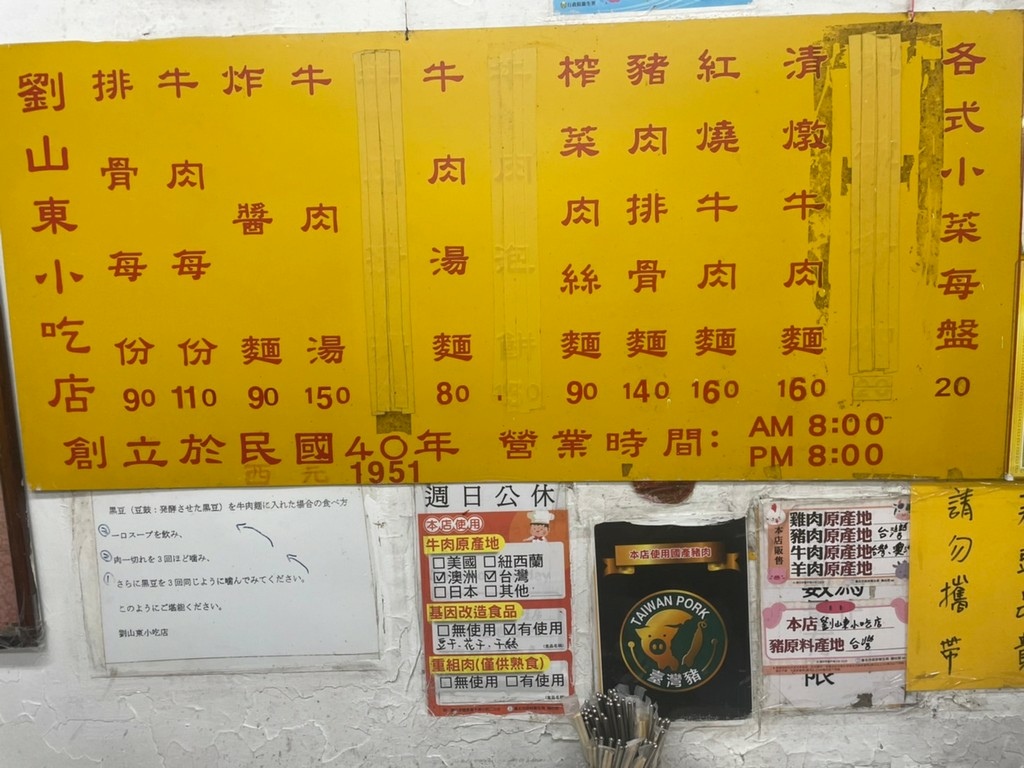 各式小菜每盤 20
清燉牛肉麵 160
紅燒牛肉麵 160
豬肉排骨麵 140
榨菜肉絲麵 90
牛肉湯麵 80
牛肉湯 150
炸醬麵 90
牛肉每份 110
排骨每份 90
劉山東小吃店
創立於民國40年
西元1951
營業時間:
AM 8:00
PM 8:00
黒豆(豆鼓:発酵させた黒豆)を牛肉麺に入れた場合の食べ方
一口スープを飲み、
肉一切れを3回ほど噛み、
さらに黒豆を3回同じように噛んでみてください。
このようにご堪能ください。
劉山東小吃店
週日公休
本店使用
牛肉原產地
□美國 □紐西蘭
☑澳洲 ☑台灣
□日本 □其他
基因改造食品
□無使用 ☑有使用
重組肉(僅供熟食)
□無使用 □有使用
本店使用國產豬肉
TAIWAN PORK
臺灣豬
本店販售
雞肉原產地 台灣
豬肉原產地
牛肉原產地
羊肉原產地
本店 劉山東小吃店
豬原料產地 台灣
限
請勿攜帶